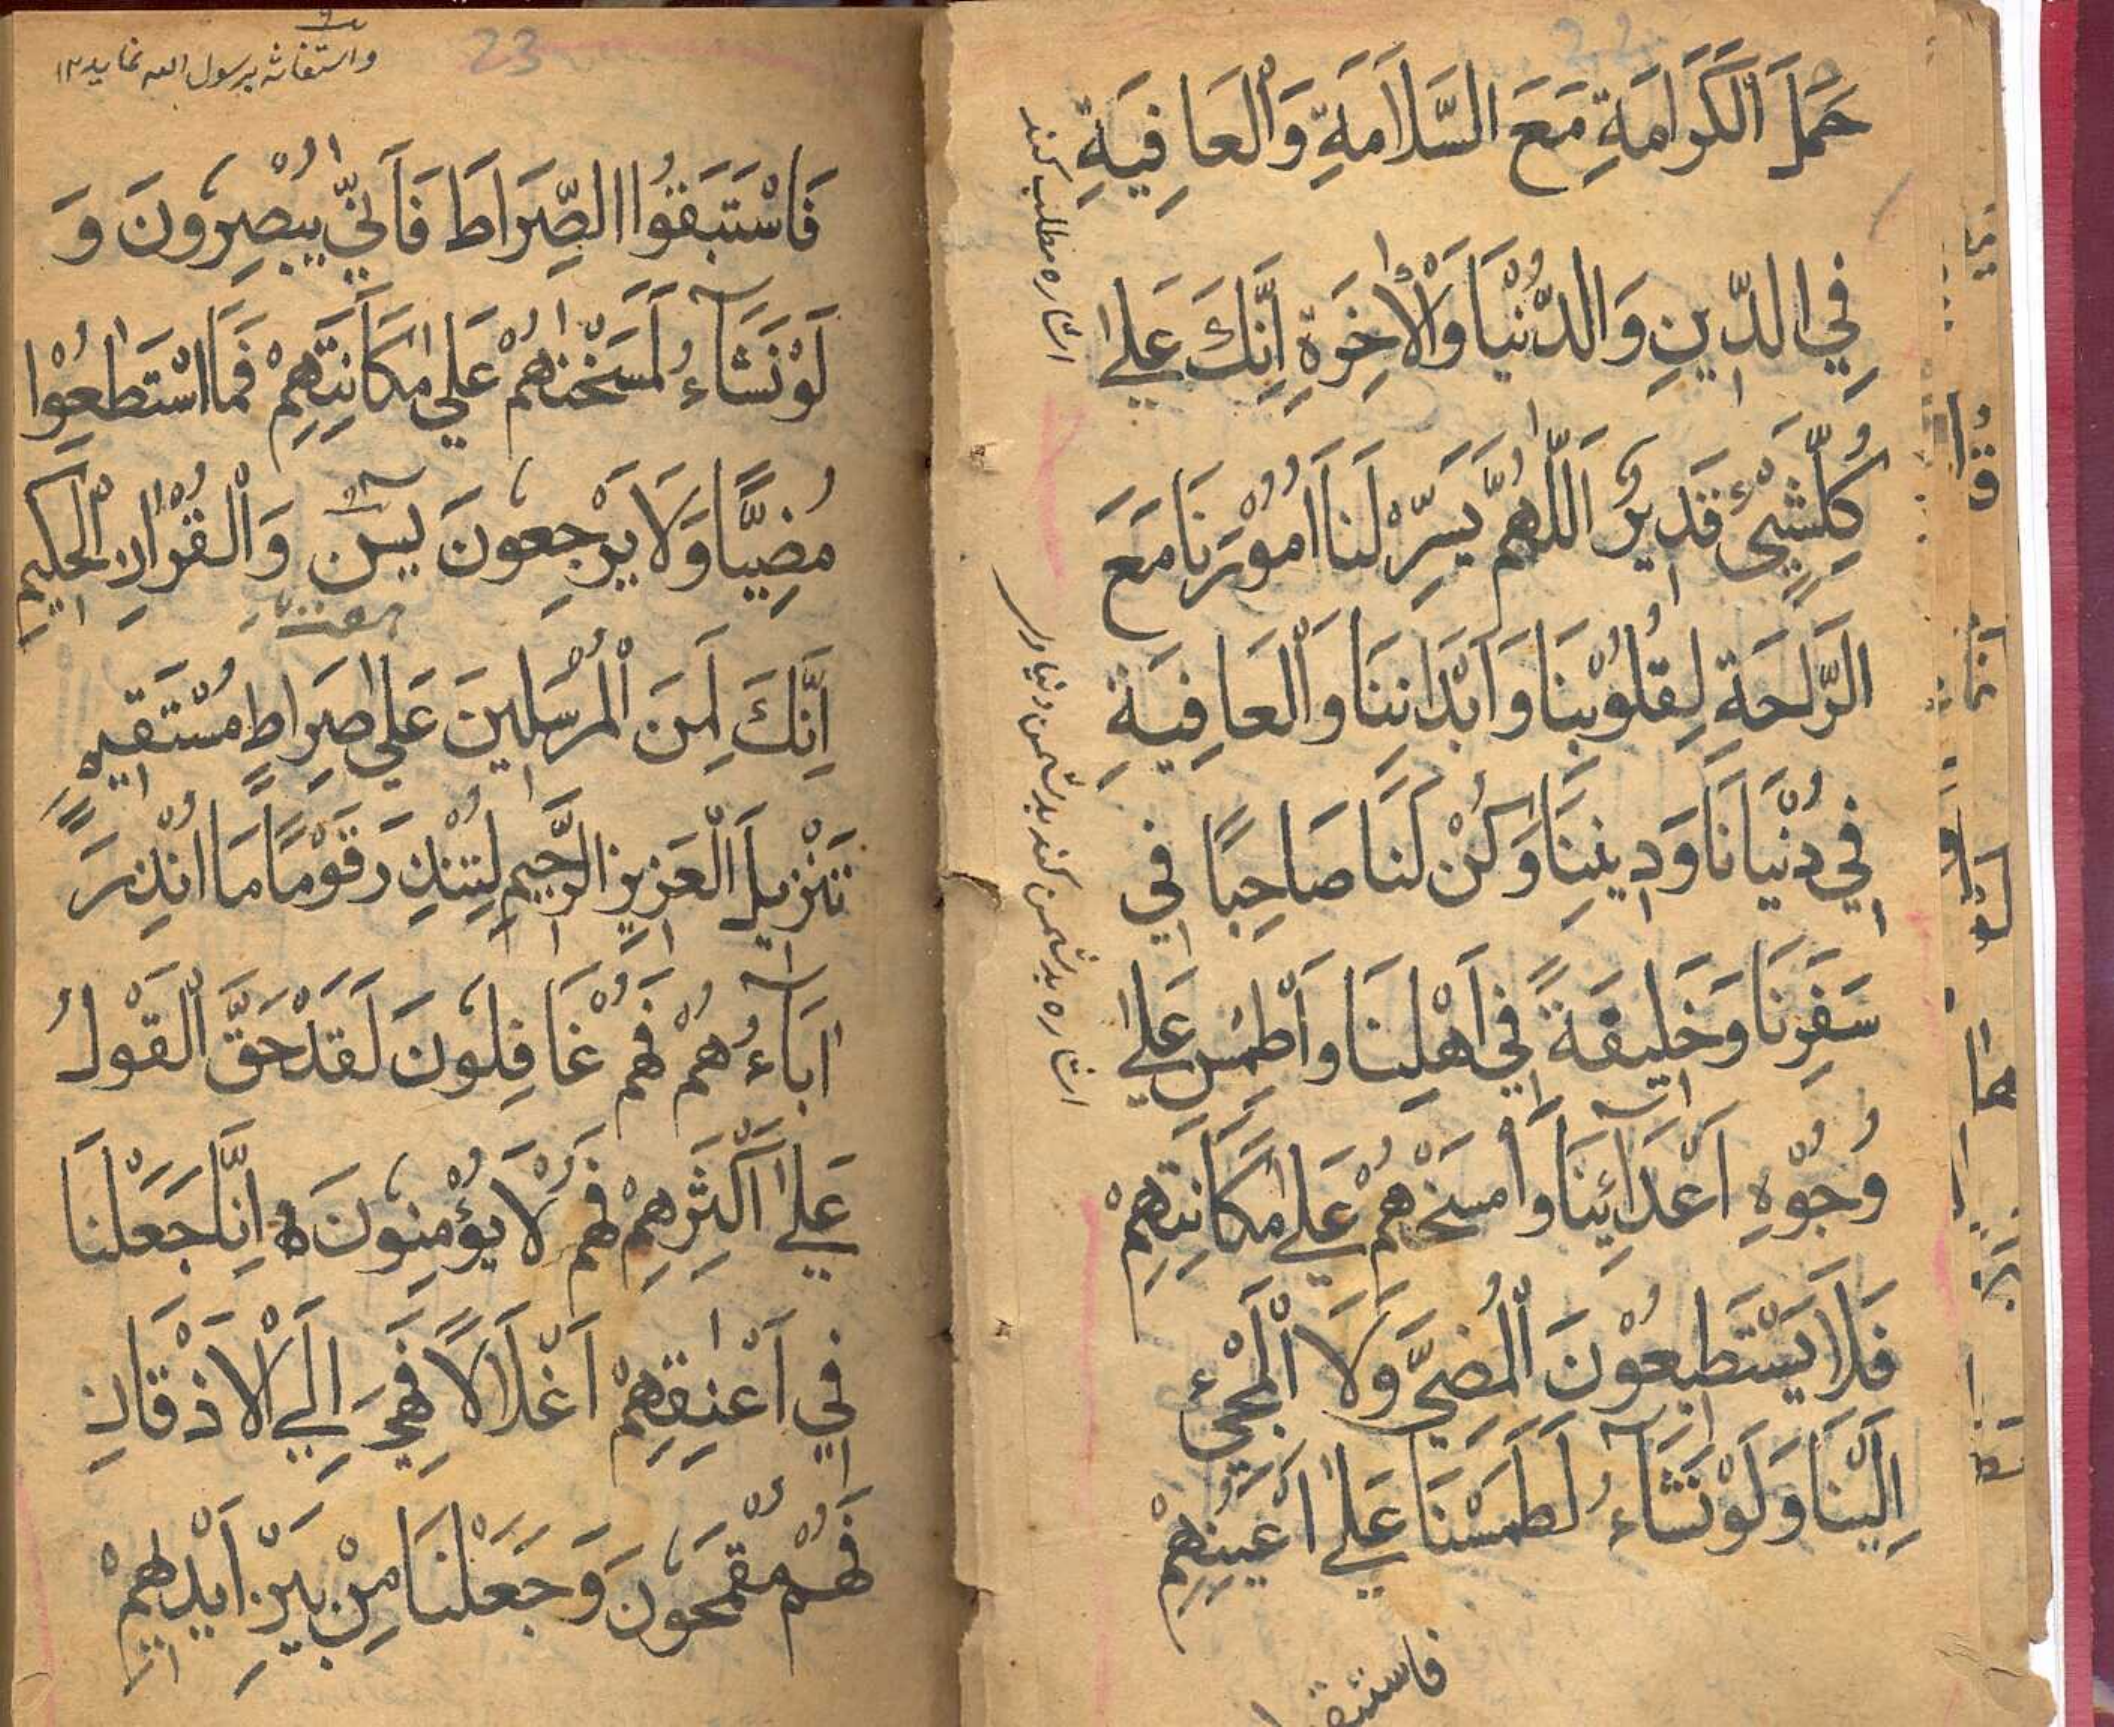 22
حَمْلَ الْكَرَامَةِ مَعَ السَّلَامَةِ وَالْعَافِيَةِ
فِي الدِّينِ وَالدُّنْيَا وَالْاٰخِرَةِ اِنَّكَ عَلٰى
كُلِّ شَيْءٍ قَدِيرٌ اَللّٰهُمَّ يَسِّرْ لَنَا اُمُوْرَنَا مَعَ
الرَّاحَةِ لِقُلُوْبِنَا وَاَبْدَانِنَا وَالْعَافِيَةِ
فِي دُنْيَانَا وَدِينِنَا وَكُنْ لَنَا صَاحِبًا فِي
سَفَرِنَا وَخَلِيفَةً فِي اَهْلِنَا وَاَطْمِسْ عَلٰى
وُجُوْهِ اَعْدَائِنَا وَامْسَخْهُمْ عَلٰى مَكَانَتِهِمْ
فَلَا يَسْتَطِيعُوْنَ الْمُضِيَّ وَلَا الْمَجِيْءَ
اِلَيْنَا وَلَوْ نَشَآءُ لَطَمَسْنَا عَلٰى اَعْيُنِهِمْ
اشاره مطلب كند
اشاره بدشمن كند بدشمن دنياوى
23
واستغاثه برسول الله نمايد ١٢
فَاسْتَبَقُوا الصِّرَاطَ فَاَنّٰى يُبْصِرُونَ وَ
لَوْ نَشَآءُ لَمَسَخْنٰهُمْ عَلٰى مَكَانَتِهِمْ فَمَا اسْتَطٰعُوْا
مُضِيًّا وَلَا يَرْجِعُونَ يٰسٓ وَالْقُرْاٰنِ الْحَكِيمِ
اِنَّكَ لَمِنَ الْمُرْسَلِينَ عَلٰى صِرَاطٍ مُسْتَقِيمٍ
تَنْزِيلَ الْعَزِيزِ الرَّحِيمِ لِتُنْذِرَ قَوْمًا مَا اُنْذِرَ
اٰبَآءُهُمْ فَهُمْ غَافِلُونَ لَقَدْ حَقَّ الْقَوْلُ
عَلٰى اَكْثَرِهِمْ فَهُمْ لَا يُؤْمِنُونَ ه اِنَّا جَعَلْنَا
فِي اَعْنٰقِهِمْ اَغْلَالًا فَهِيَ اِلَى الْاَذْقَانِ
فَهُمْ مُقْمَحُونَ وَجَعَلْنَا مِنْ بَيْنِ اَيْدِيهِمْ